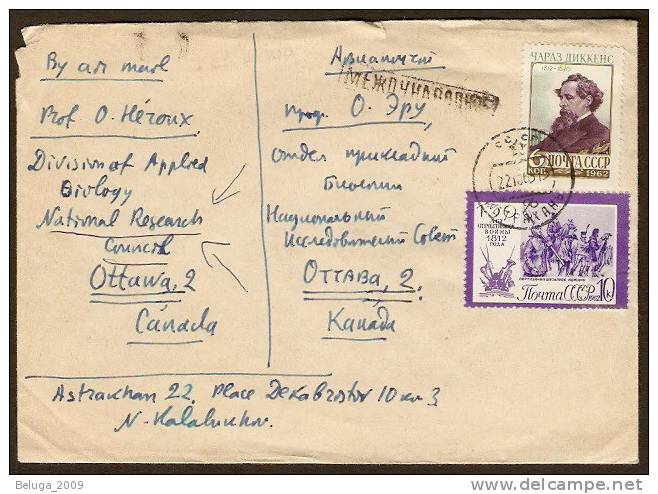 By air mail
Prof O. Héroux
Division of Applied
Biology
National Research
Council
Ottawa, 2
Canada
Авиапочтой
МЕЖДУНАРОДНОЕ
проф. О. Эру,
отдел прикладной
Биологии
Национальный
Исследований Совет
Оттава, 2.
Канада
ЧАРЛЗ ДИККЕНС
1812-1870
6 ПОЧТА СССР
КОП. 1962
ЛЕТ
ОТЕЧЕСТВЕННОЙ
ВОЙНЫ
1812
ГОДА
Почта СССР 1962 10к
Astrakhan 22, Place Dekabristov 10 кв 3
N.
Beluga_2009
www.delcampe.net